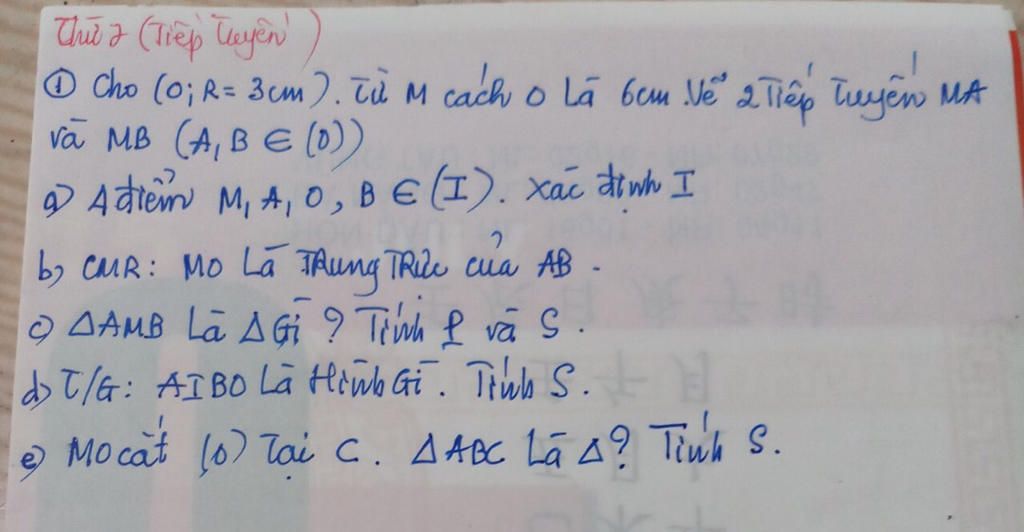 Thứ 2 (Tiếp Tuyến)
① Cho (O; R = 3cm). Từ M cách O là 6cm. Vẽ 2 Tiếp Tuyến MA
và MB (A, B ∈ (O))
a) 4 điểm M, A, O, B ∈ (I). Xác định I
b) CMR: MO Là TRung TRức của AB.
c) ΔAMB Là ΔGì ? Tính P và S.
d) T/G: AIBO Là Hình Gì. Tính S.
e) MO cắt (O) Tại C. ΔABC Là Δ? Tính S.